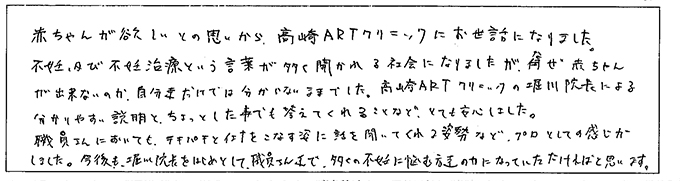 赤ちゃんが欲しいとの思いから、高崎ARTクリニックにお世話になりました。
不妊及び不妊治療という言葉が多く聞かれる社会になりましたが、何ぜ赤ちゃん
が出来ないのか、自分達だけでは分からないままでした。高崎ARTクリニックの堀川院長による
分かりやすい説明と、ちょっとした事でも答えてくれることなど、とても安心しました。
職員さんにおいても、テキパキと仕事をこなす姿に話を聞いてくれる姿勢など、プロとしての感じが
しました。今後も、堀川院長をはじめとして、職員さん達で、多くの不妊に悩む方達の力になっていただければと思います。